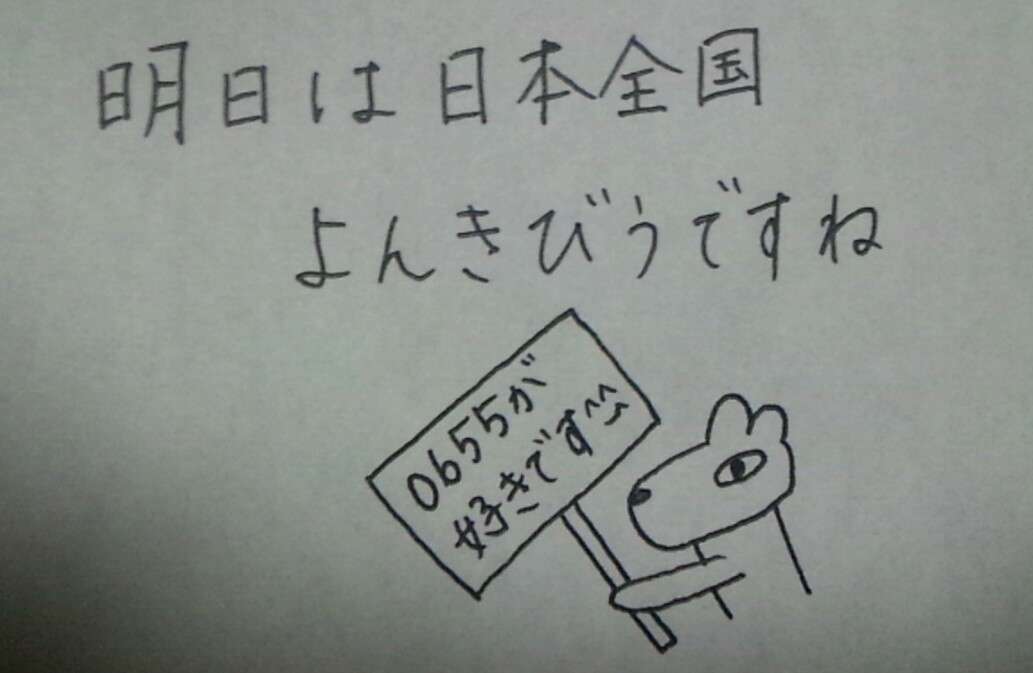 明日は日本全国
よんきびうですね
0655が
好きです^^